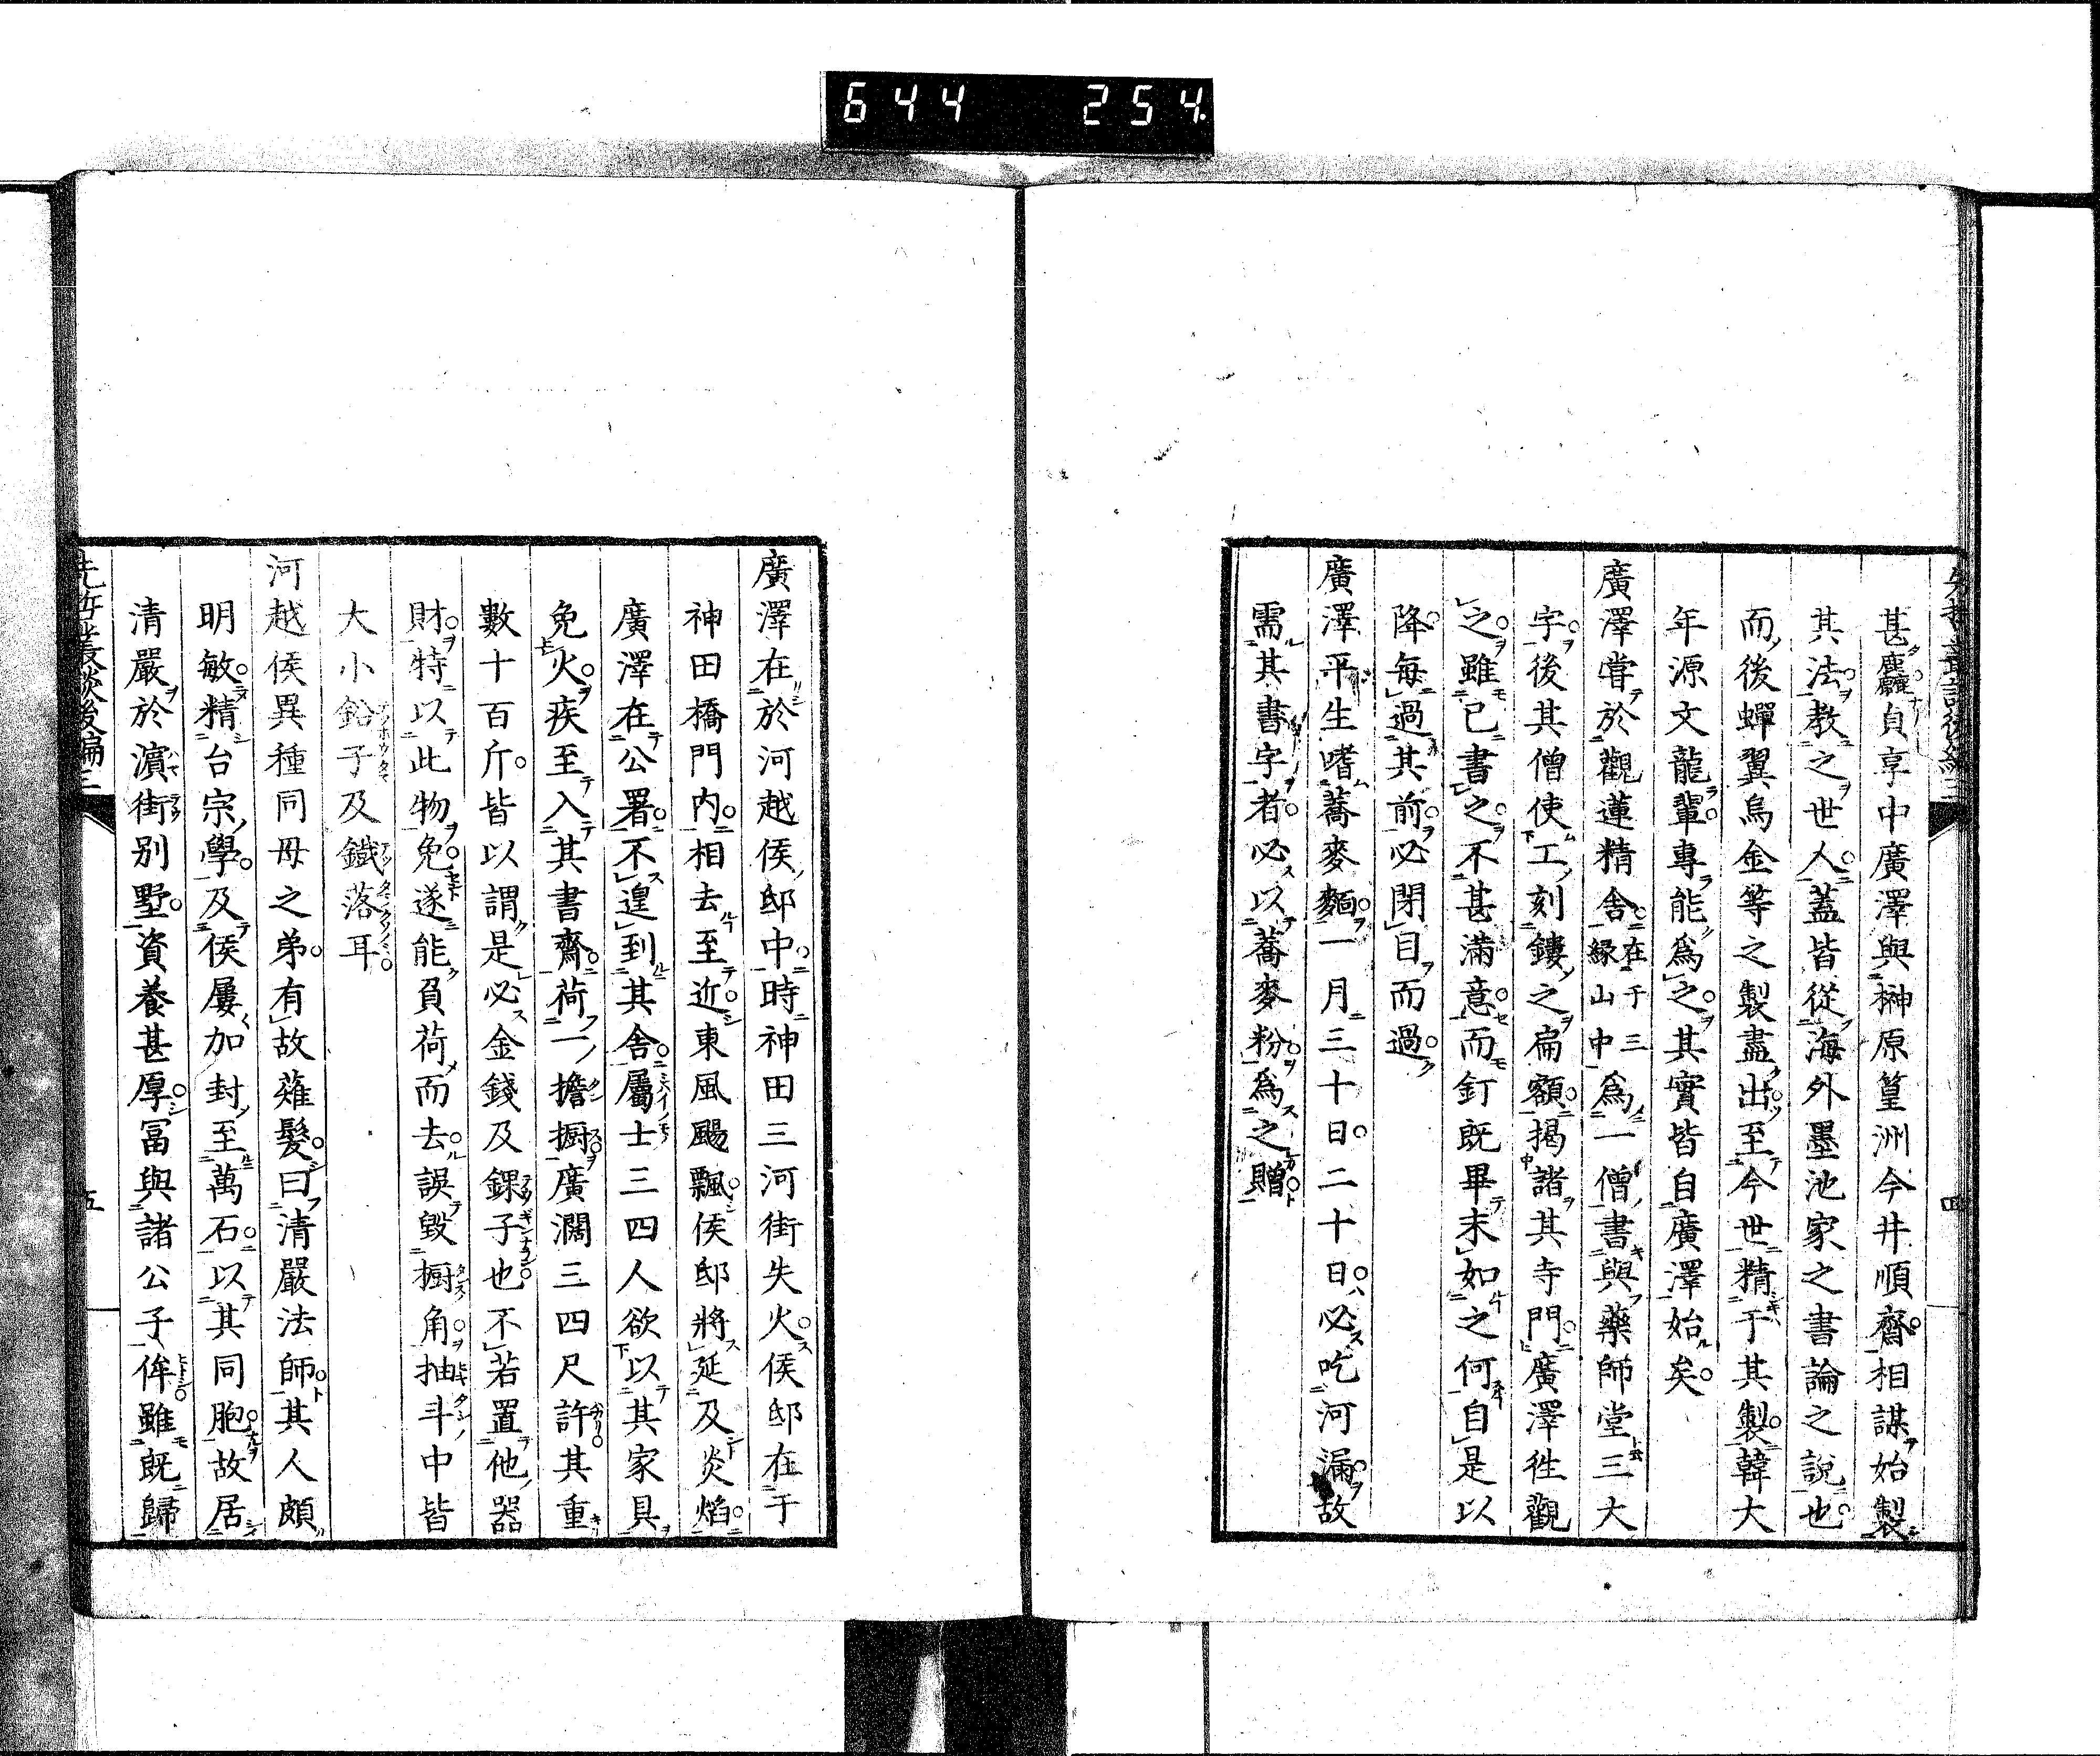 644 254
甚麤貞享中廣澤與榊原篁洲今井順齋相謀始製
其法教之世人蓋皆從海外墨池家之書論之說也
而後蟬翼烏金等之製盡出至今世精于其製韓大
年源文龍輩專能爲之其實皆自廣澤始矣
廣澤嘗於觀蓮精舍在于三緣山中爲一僧書與藥師堂三大
字後其僧使工刻鏤之扁額揭諸其寺門廣澤徃觀
之雖已書之不甚滿意而釘既畢末如之何自是以
降每過其前必閉目而過
廣澤平生嗜蕎麥麵一月三十日二十日必吃河漏故
需其書字者必以蕎麥粉爲之贈
四
廣澤在於河越侯邸中時神田三河街失火侯邸在于
神田橋門内相去至近東風颺飄侯邸將延及炎焰
廣澤在公署不遑到其舍屬士三四人欲以其家具
免火疾至入其書齋荷一擔櫥廣濶三四尺許其重
數十百斤皆以謂是必金錢及錁子也不若置他器
財特以此物免遂能負荷而去誤毀櫥角抽斗中皆
大小鉛子及鐵落耳
河越侯異種同母之弟有故薙髮曰清嚴法師其人頗
明敏精台宗學及侯屢加封至萬石以其同胞故居
清嚴於濵街别墅資養甚厚冨與諸公子侔雖既歸
先哲叢談後編三
五